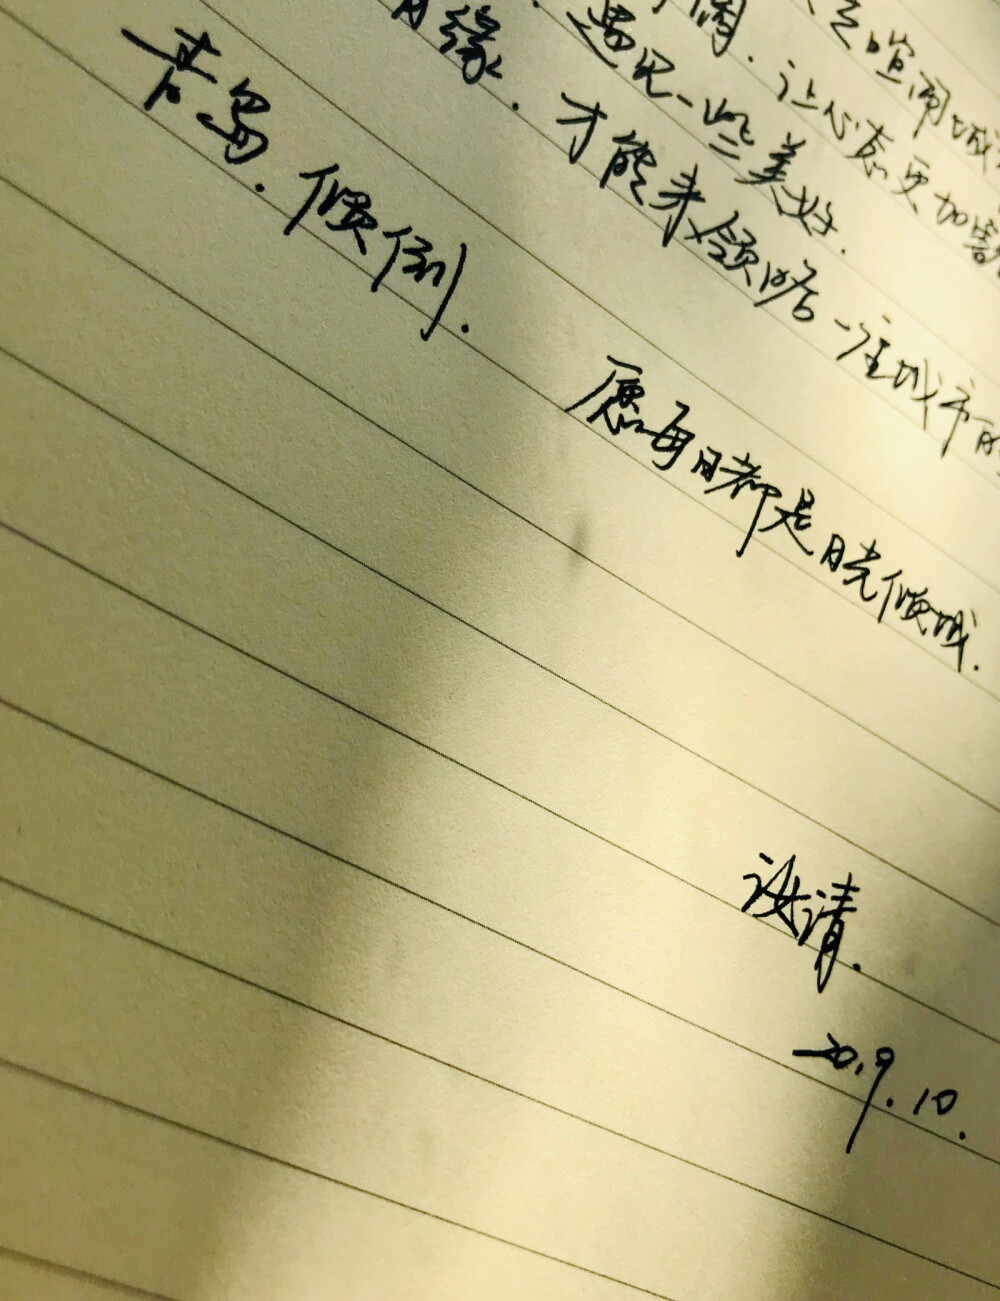 喧闹城
让心态更加豁
遇见一些美好.
有缘.才能来领略一座城市的
青岛.倾倒.
愿每日都是晴光倾城.
汝清.
20.9.10.